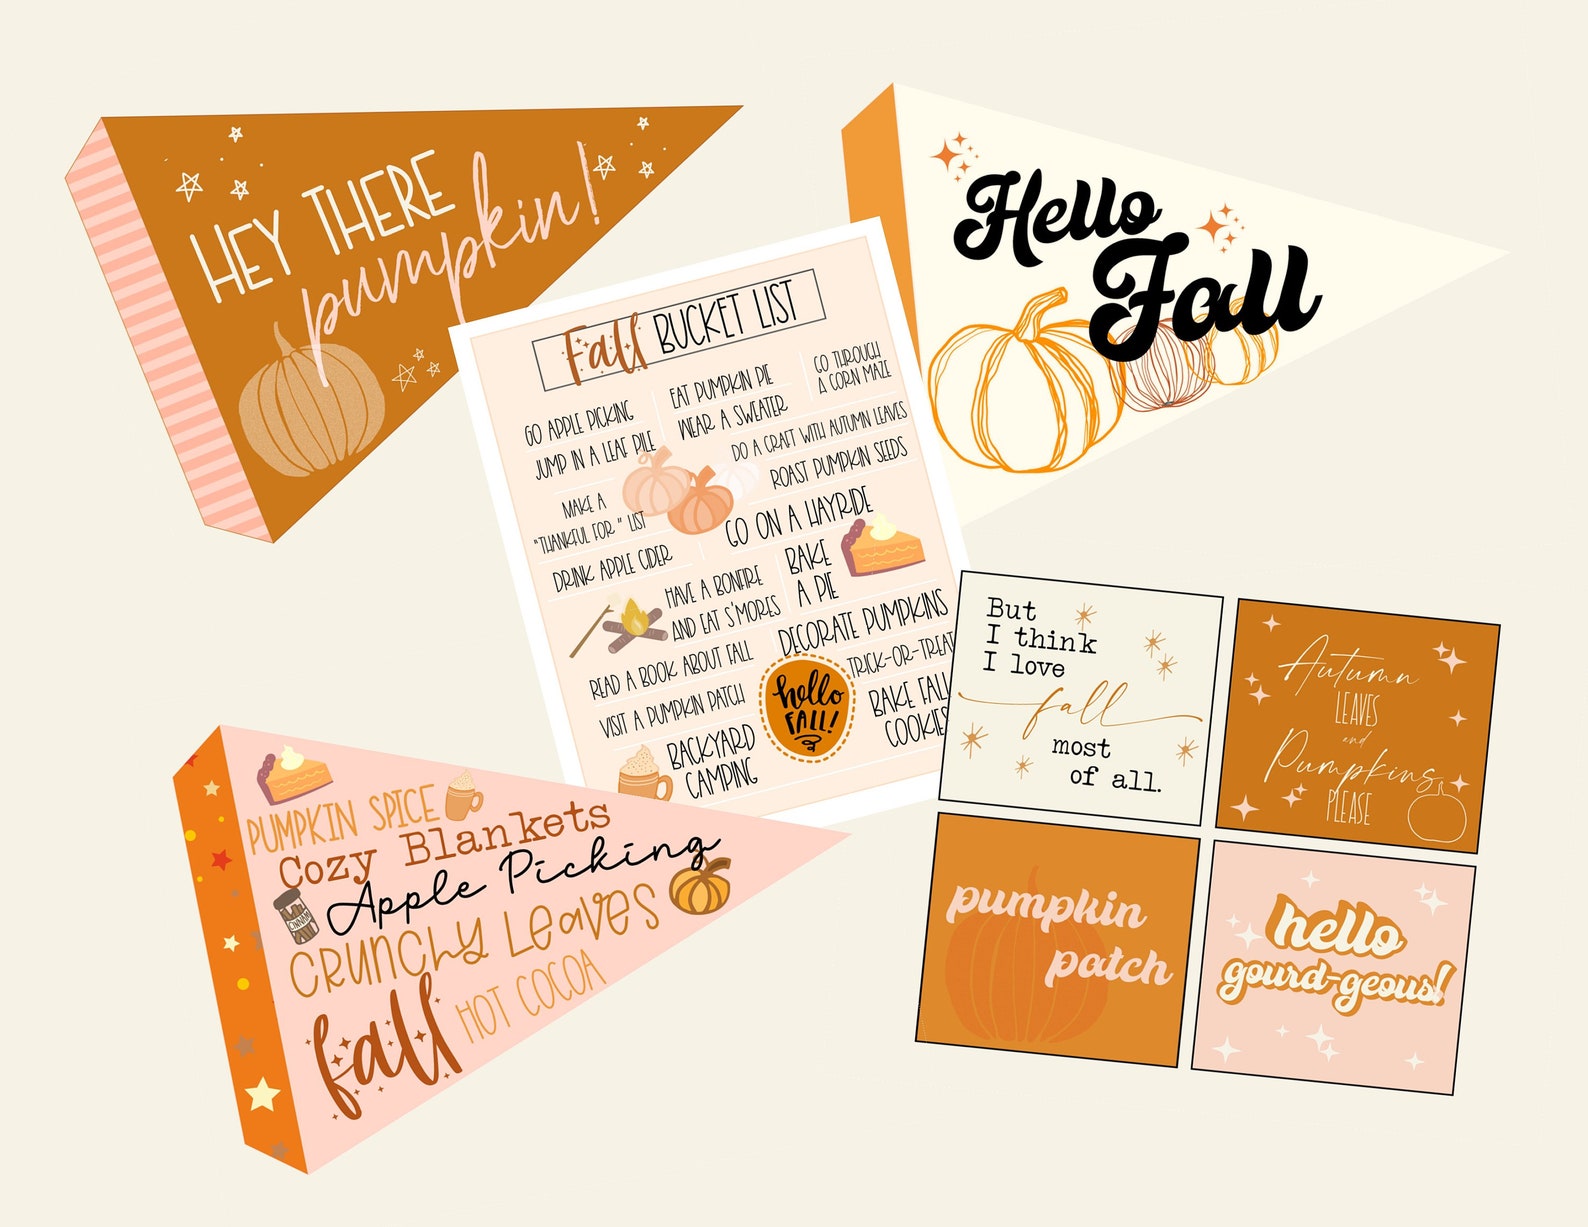 HEY THERE
pumpkin!
Hello
Fall
Fall BUCKET LIST
GO APPLE PICKING
JUMP IN A LEAF PILE
EAT PUMPKIN PIE
WEAR A SWEATER
GO THROUGH
A CORN MAZE
DO A CRAFT WITH AUTUMN LEAVES
ROAST PUMPKIN SEEDS
MAKE A
"THANKFUL FOR" LIST
GO ON A HAYRIDE
DRINK APPLE CIDER
BAKE
A PIE
HAVE A BONFIRE
AND EAT S'MORES
DECORATE PUMPKINS
READ A BOOK ABOUT FALL
TRICK-OR-TREAT
VISIT A PUMPKIN PATCH
hello
FALL!
BAKE FALL
COOKIES
BACKYARD
CAMPING
PUMPKIN SPICE
Cozy Blankets
Apple Picking
CRUNCHY LEAVES
fall
HOT COCOA
But
I think
I love
fall
most
of all.
Autumn
LEAVES
and
Pumpkins
PLEASE
pumpkin
patch
hello
gourd-geous!